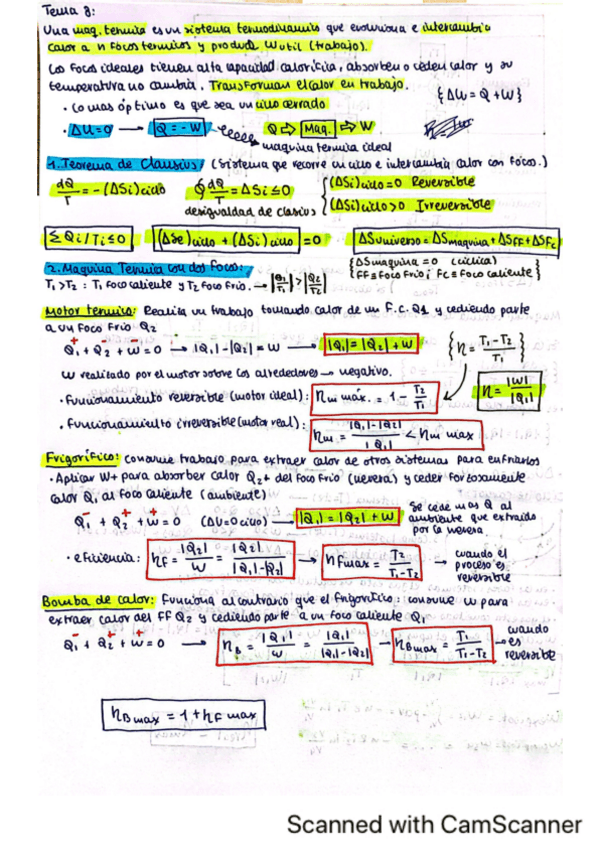 Tema 8:
Una maq. termica es un sistema termodinamico que evoluciona e intercambia
calor a n focos termicos y produce Wutil (trabajo).
Los focos ideales tienen alta capacidad calorifica, absorben o ceden calor y su
temperatura no cambia. Transforman el calor en trabajo.
· Lo mas óptimo es que sea un ciclo cerrado {ΔU = Q + W}
· ΔU=0 → Q = -W Q ⇨ Maq. ⇨ W
maquina termica ideal
1. Teorema de Clausius / (Sistema que recorre un ciclo e intercambia calor con focos.)
dQ/T = -(ΔSi)ciclo ∮dQ/T = -ΔSi ≤ 0 {(ΔSi)ciclo = 0 Reversible
desigualdad de clasius {(ΔSi)ciclo > 0 Irreversible
≤ Qi/Ti ≤ 0 (ΔSe)ciclo + (ΔSi)ciclo = 0 ΔSuniverso = ΔSmaquina + ΔSFF + ΔSFc
2. Maquina Termica con dos Focos: {ΔSmaquina = 0 (cíclica)
T1 > T2 : T1 foco caliente y T2 foco Frio. → |Q1/T1| > |Q2/T2| FF ≡ Foco Frio; Fc ≡ Foco caliente}
Motor termico: Realiza un trabajo tomando calor de un F.C. Q1 y cediendo parte
a un Foco Frio Q2
Q1 + Q2 + W = 0 → |Q1| - |Q2| = W → |Q1| = |Q2| + W {η = T1 - T2 / T1}
W realizado por el motor sobre los alrededores → negativo. η = |W| / |Q1|
· Funcionamiento reversible (motor ideal): ηm máx. = 1 - T2/T1
· Funcionamiento irreversible (motor real): ηm = |Q1| - |Q2| / |Q1| < ηm max
Frigorífico: consume trabajo para extraer calor de otros sistemas para enfriarlos
· Aplicar W+ para absorber calor Q2+ del foco frio (nevera) y ceder forzosamente
calor Q1 al foco caliente (ambiente)
Q1 + Q2 + W = 0 (ΔU=0 ciclo) → |Q1| = |Q2| + W Se cede mas Q al
ambiente que extraido
por la nevera
· eficiencia: ηF = |Q2| / W = |Q2| / |Q1| - |Q2| → ηFmax = T2 / T1 - T2 → cuando el
proceso es
reversible
Bomba de calor: Funciona al contrario que el frigorifico: consume W para
extraer calor del FF Q2 y cediendo parte a un foco caliente Q1
Q1 + Q2 + W = 0 → ηB = |Q1| / W = |Q1| / |Q1| - |Q2| → ηBmax = T1 / T1 - T2 → cuando
es
reversible
ηBmax = 1 + ηF max
Scanned with CamScanner